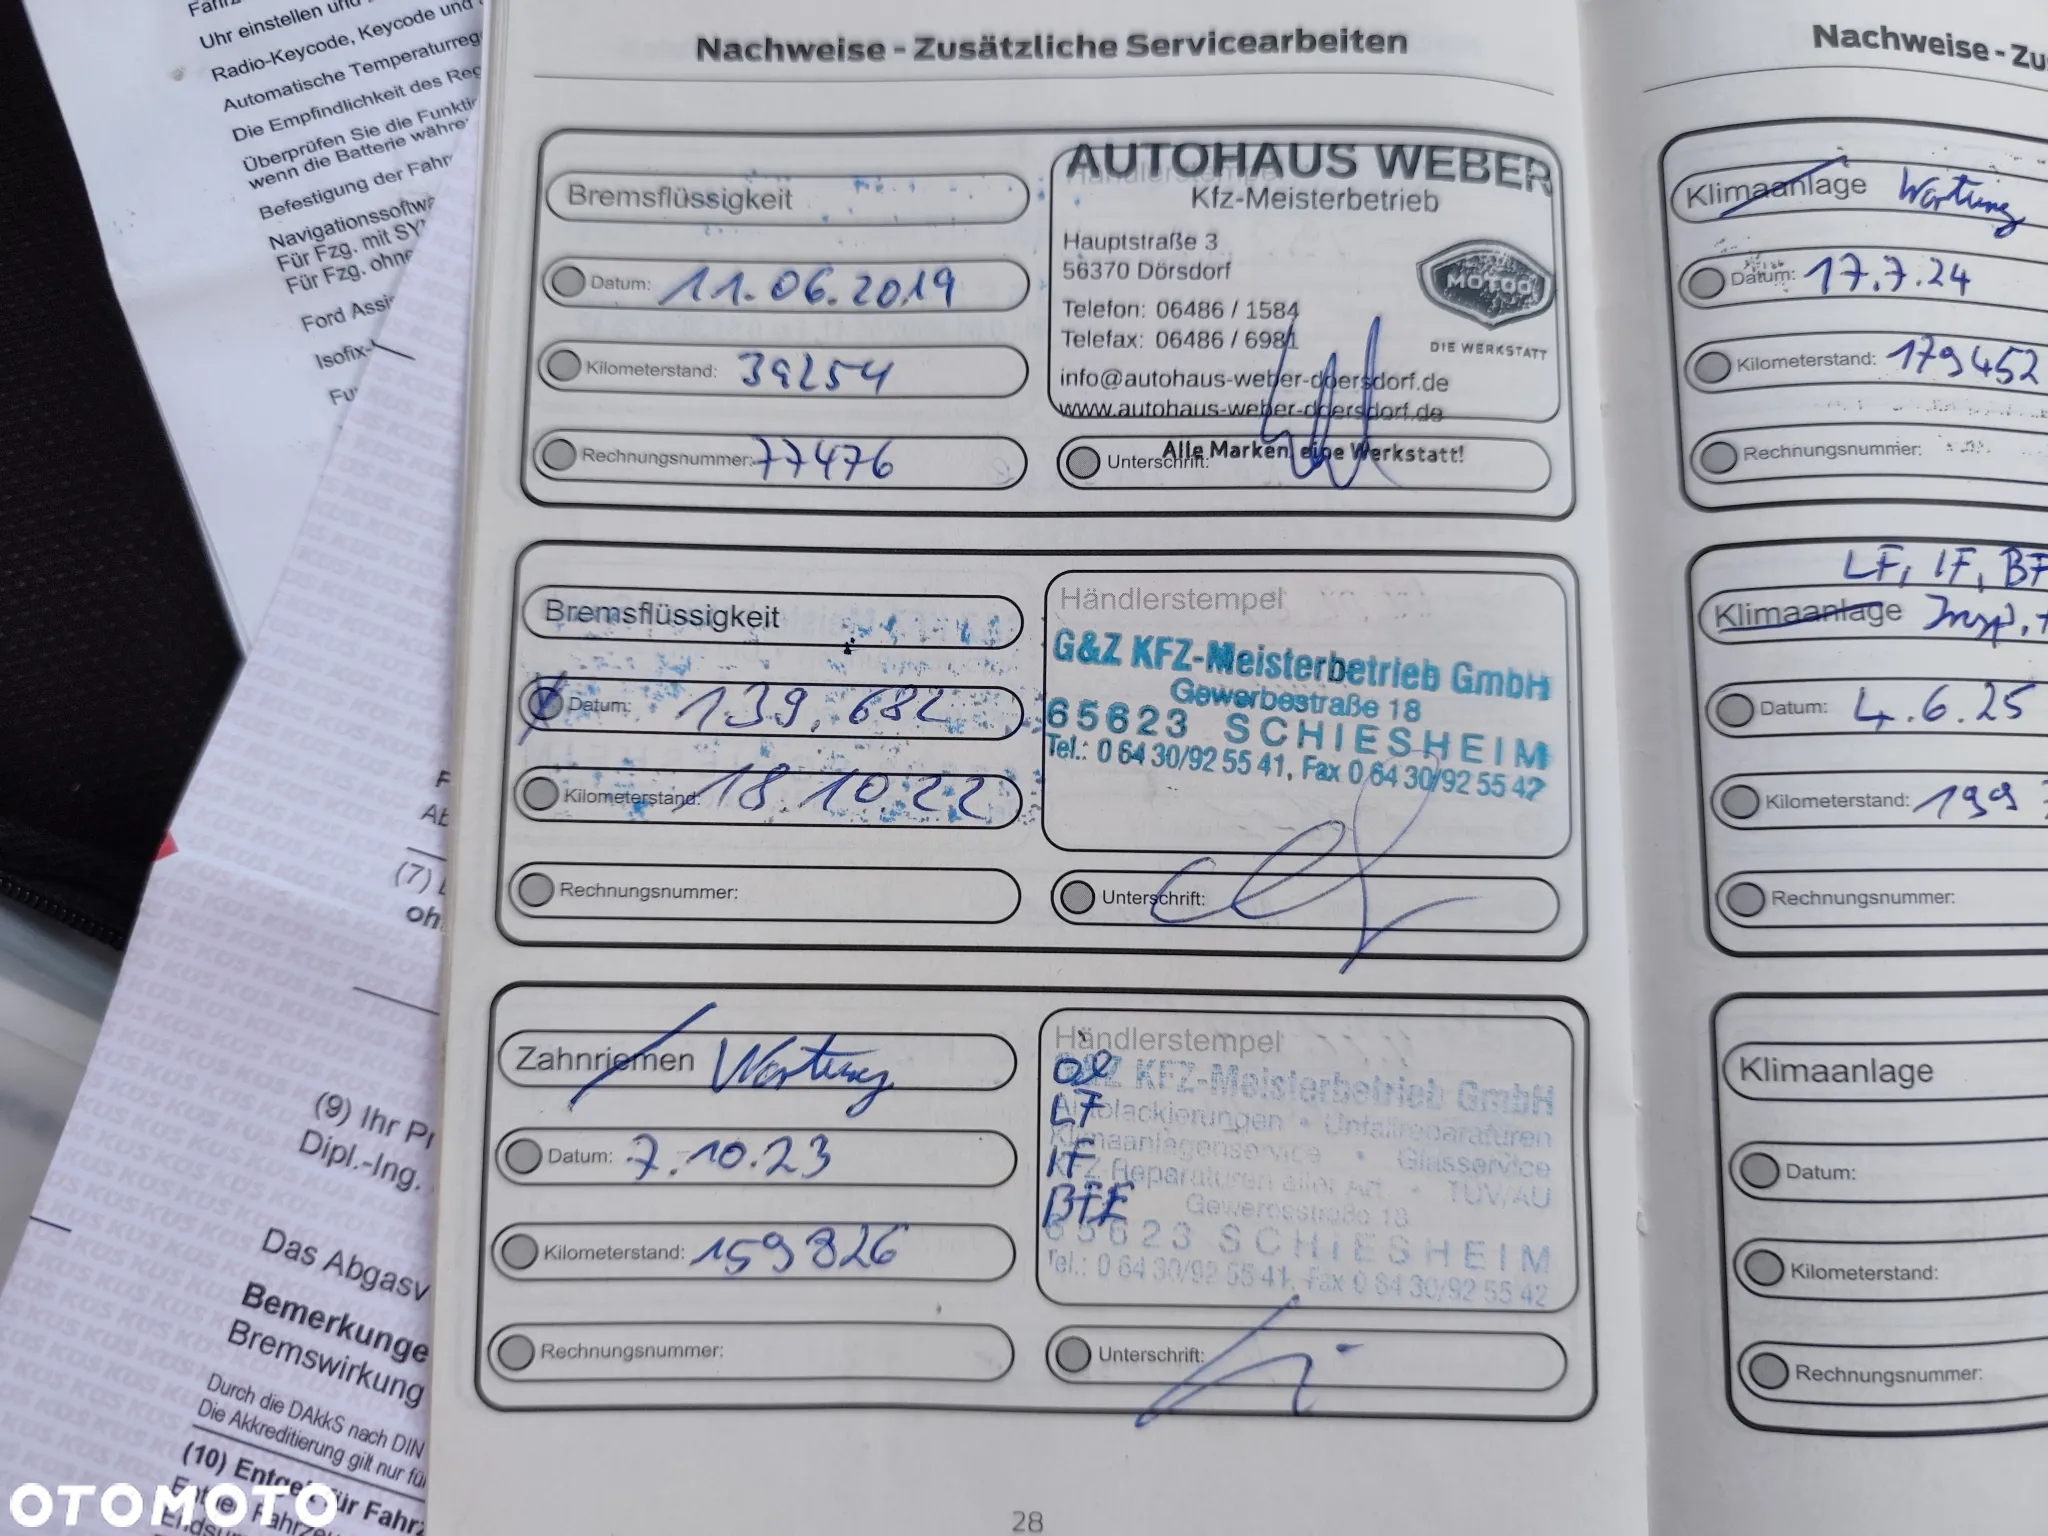 Uhr einstellen und
Radio-Keycode, Keycode und
Automatische Temperaturreg
Die Empfindlichkeit des Reg
Überprüfen Sie die Funktio
wenn die Batterie währe
Befestigung der Fahr
Navigationssoftwa
Für Fzg. mit SY
Für Fzg. ohne
Ford Assi
Isofix-
(7)
oh
(9) Ihr Pr
Dipl.-Ing.
Das Abgasv
Bemerkunge
Bremswirkung
Durch die DAkkS nach DIN
Die Akkreditierung gilt nur fü
(10) Entgelt für Fahrz
Nachweise - Zusätzliche Servicearbeiten
Bremsflüssigkeit
Datum: 11.06.2019
Kilometerstand: 39254
Rechnungsnummer: 77476
AUTOHAUS WEBER
Kfz-Meisterbetrieb
Hauptstraße 3
56370 Dörsdorf
Telefon: 06486 / 1584
Telefax: 06486 / 6981
info@autohaus-weber-doersdorf.de
www.autohaus-weber-doersdorf.de
MOTOO
DIE WERKSTATT
Alle Marken, eine Werkstatt!
Unterschrift:
Bremsflüssigkeit
Datum: 139.682
Kilometerstand: 18.10.22
Rechnungsnummer:
Händlerstempel
G&Z KFZ-Meisterbetrieb GmbH
Gewerbestraße 18
65623 SCHIESHEIM
Tel.: 0 64 30/92 55 41, Fax 0 64 30/92 55 42
Unterschrift:
Zahnriemen Wartung
Datum: 7.10.23
Kilometerstand: 159826
Rechnungsnummer:
Händlerstempel
G&Z KFZ-Meisterbetrieb GmbH
Autolackierungen • Unfallreparaturen
Klimaanlagenservice • Glasservice
KFZ-Reparaturen aller Art • TÜV/AU
Gewerbestraße 18
65623 SCHIESHEIM
Tel.: 0 64 30/92 55 41, Fax 0 64 30/92 55 42
Öl
LF
IF
BFE
Unterschrift:
28
Nachweise - Zu
Klimaanlage Wartung
Datum: 17.7.24
Kilometerstand: 179452
Rechnungsnummer:
LF, IF, BF
Klimaanlage Insp. +
Datum: 4.6.25
Kilometerstand: 199
Rechnungsnummer:
Klimaanlage
Datum:
Kilometerstand:
Rechnungsnummer:
OTOMOTO